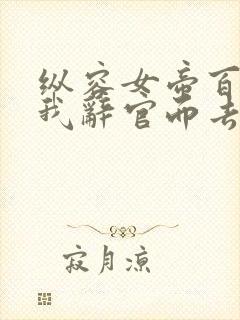 纵容女帝百
我辞官而去
寂月凉